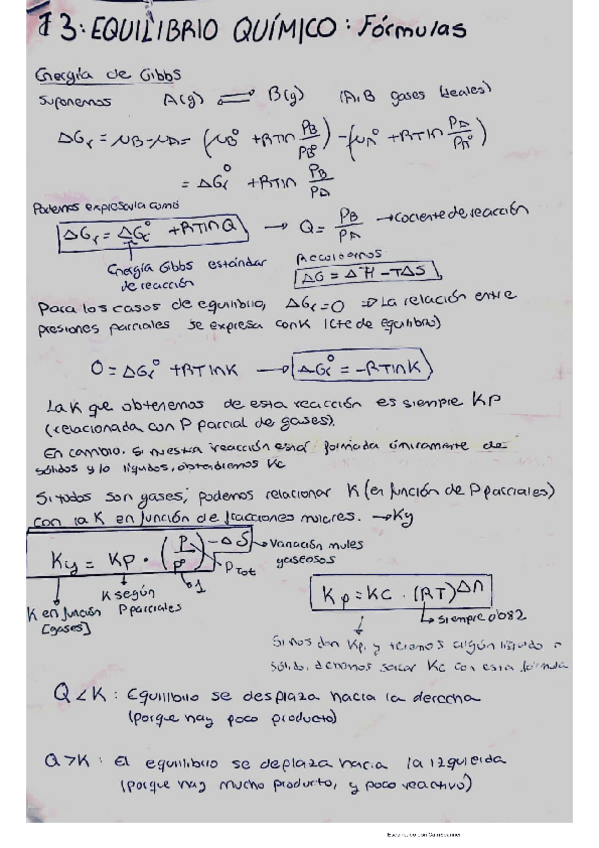 T3: EQUILIBRIO QUÍMICO: Fórmulas
Energía de Gibbs
Suponemos A(g) ⇌ B(g) (A,B gases ideales)
ΔGr = μB-μA = (μB° + RTln PB/PB°) - (μA° + RTln PA/PA°)
= ΔGr° + RTln PB/PA
Podemos expresarla como
ΔGr = ΔGr° + RTlnQ → Q = PB/PA → Cociente de reacción
Energía Gibbs estándar
de reacción
Recordemos
ΔG = ΔH - TΔS
Para los casos de equilibrio, ΔGr = 0 ⇒ La relación entre
presiones parciales se expresa con K (cte de equilibrio)
0 = ΔGr° + RTlnK → ΔGr° = -RTlnK
La K que obtenemos de esta reacción es siempre KP
(relacionada con P parcial de gases).
En cambio, si nuestra reacción está formada únicamente de
sólidos y/o líquidos, obtendremos Kc
Si todos son gases, podemos relacionar K (en función de P parciales)
con la K en función de fracciones molares. → Ky
Ky = Kp · (P/P°)^-ΔS → Variación moles
gaseosos
PTot
1
K según
P parciales
K en función
[gases]
Kp = Kc · (RT)^Δn
siempre 0'082
Si nos dan Kp, y tenemos algún líquido o
sólido, debemos sacar Kc con esta fórmula
Q < K : Equilibrio se desplaza hacia la derecha
(porque hay poco producto)
Q > K : El equilibrio se deplaza hacia la izquierda
(porque hay mucho producto, y poco reactivo)
Escaneado con CamScanner